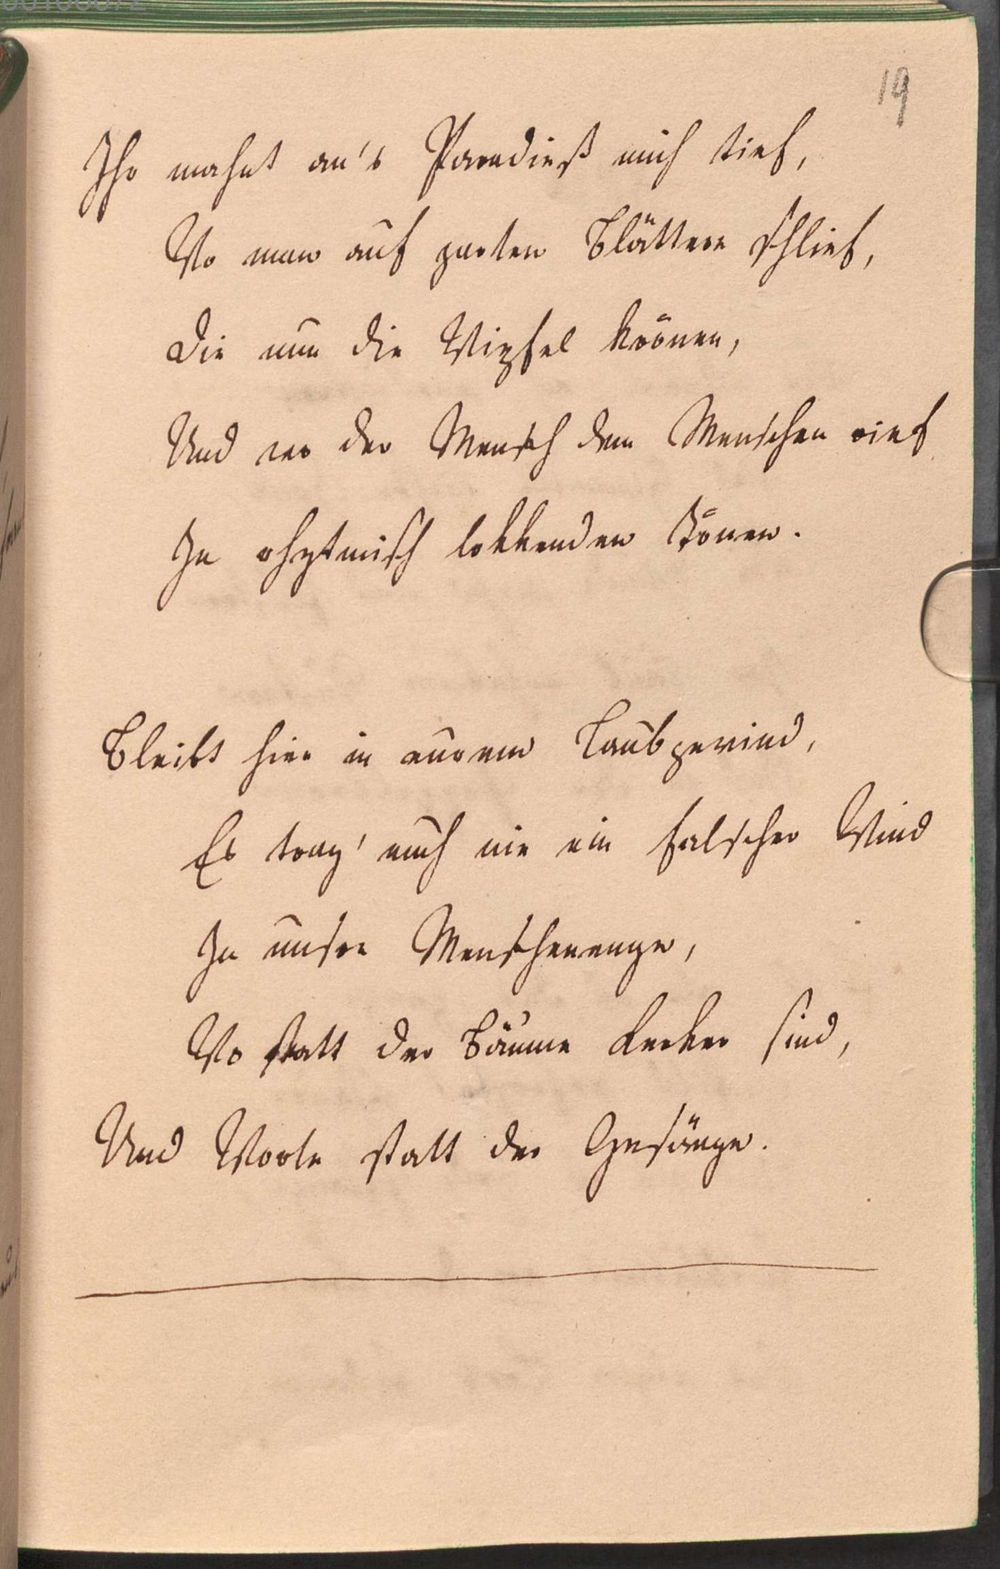 19
Ihr mahnt an's Paradieß mich tief,
Wo man auf zarten Blättern schlief,
Die nun die Wipfel krönen,
Und wo der Mensch dem Menschen rief
In rhytmisch lokkenden Tönen.
Bleibt hier in eurem Laubgewind,
Es trag' euch nie ein falscher Wind
In unsre Menschenenge,
Wo statt der Bäume Kerker sind,
Und Worte statt der Gesänge.